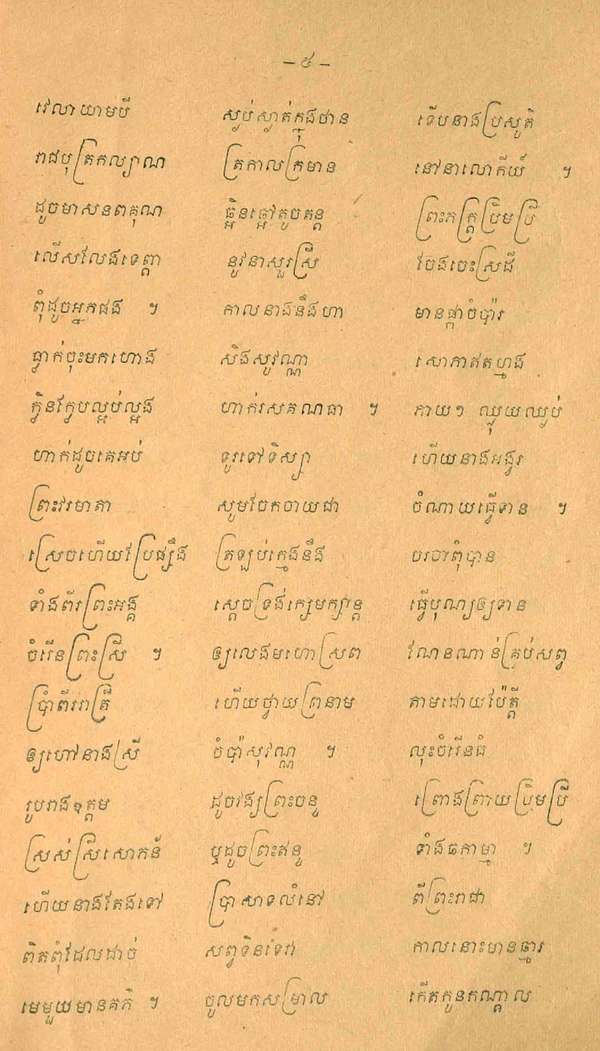 – ៥ –
វេលាយាមបី ស្លប់ស្លាត់ក្នុងថាន ទើបនាងប្រសូតិ
រាជបុត្រកល្យាណ ត្រកាលក្រមាន នៅនាលោកីយ៍ ។
ដូចមាសនពគុណ ធ្អិនឆ្អៅតូចតន្ត ព្រះភក្ត្រប្រិមប្រី
លើសលែងទេព្តា នូវនាសួរស្រី ចែងចេះស្រដី
ពុំដូចអ្នកផង ។ កាលនាងនឹងហា មានផ្កាចំប៉ារ
ធ្លាក់ចុះមកហោង សិងសូវណ្ណា សោភាឥតហ្មង
ក្លិនក្លែបល្អប់ល្អង ហាក់រសគណធា ។ ភាយៗ ឈ្ងុយឈ្ងប់
ហាក់ដូចគេអប់ ទូរទៅទិស្សា ហើយនាងអង្វរ
ព្រះវរមាតា សូមចែកចាយជា ចំណាយធ្វើទាន ។
ស្រេចហើយប្រែផ្សឹង ត្រឡប់ក្មេងនឹង ចរចាពុំបាន
ទាំងពីរព្រះអង្គ ស្តេចទ្រង់ក្សេមក្សាន្ត ធ្វើបុណ្យឲ្យទាន
ចំរើនព្រះស្រី ។ ឲ្យលេងមហោស្រព ណែនណាន់គ្រប់សព្វ
ប្រាំពីររាត្រី ហើយថ្វាយព្រនាម តាមដោយប៉ែត្តី
ឲ្យហៅនាងស្រី ចំប៉ាសុវណ្ណ ។ លុះចំរើនធំ
រូបរាងឧត្តម ដូចវង្សព្រះចន្ទ ព្រោងព្រាយប្រិមប្រី
ស្រស់ស្រីសោកន័ ឬដូចព្រះឥន្ទ ទាំងឆកាម្មា ។
ហើយនាងតែងទៅ ប្រាសាទលំនៅ ពីព្រះរាជា
ពិតពុំដែលដាច់ សព្វទិនទែវា កាលនោះមានឆ្មារ
មេមួយមានគភ៌ ។ ចូលមកសម្រាល កើតកូនកណ្តាល